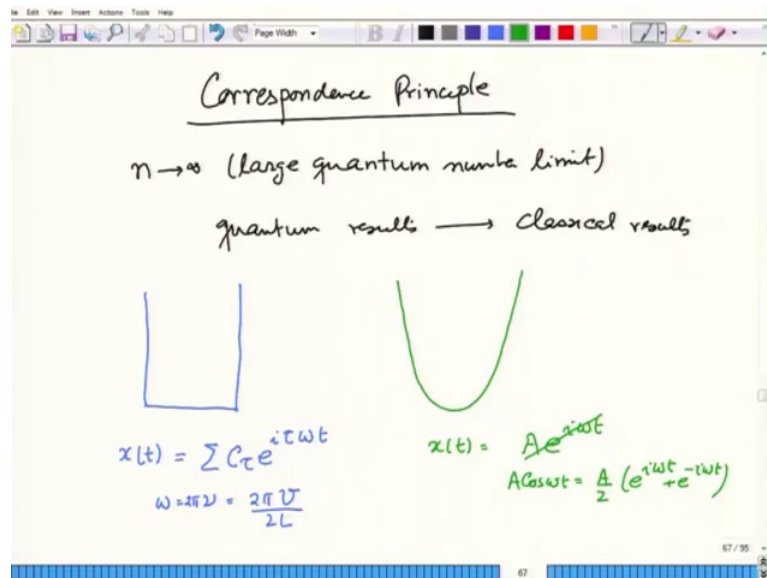 Edit View Insert Actions Tools Help
Page Width
B I
Correspondence Principle
n → ∞ (large quantum number limit)
quantum results → classical results
x(t) = Σ C_τ e^{iτωt}
ω = 2πν = 2πv / 2L
x(t) = A e^{iωt}
A Cos ωt = A/2 (e^{iωt} + e^{-iωt})
67 / 95
67